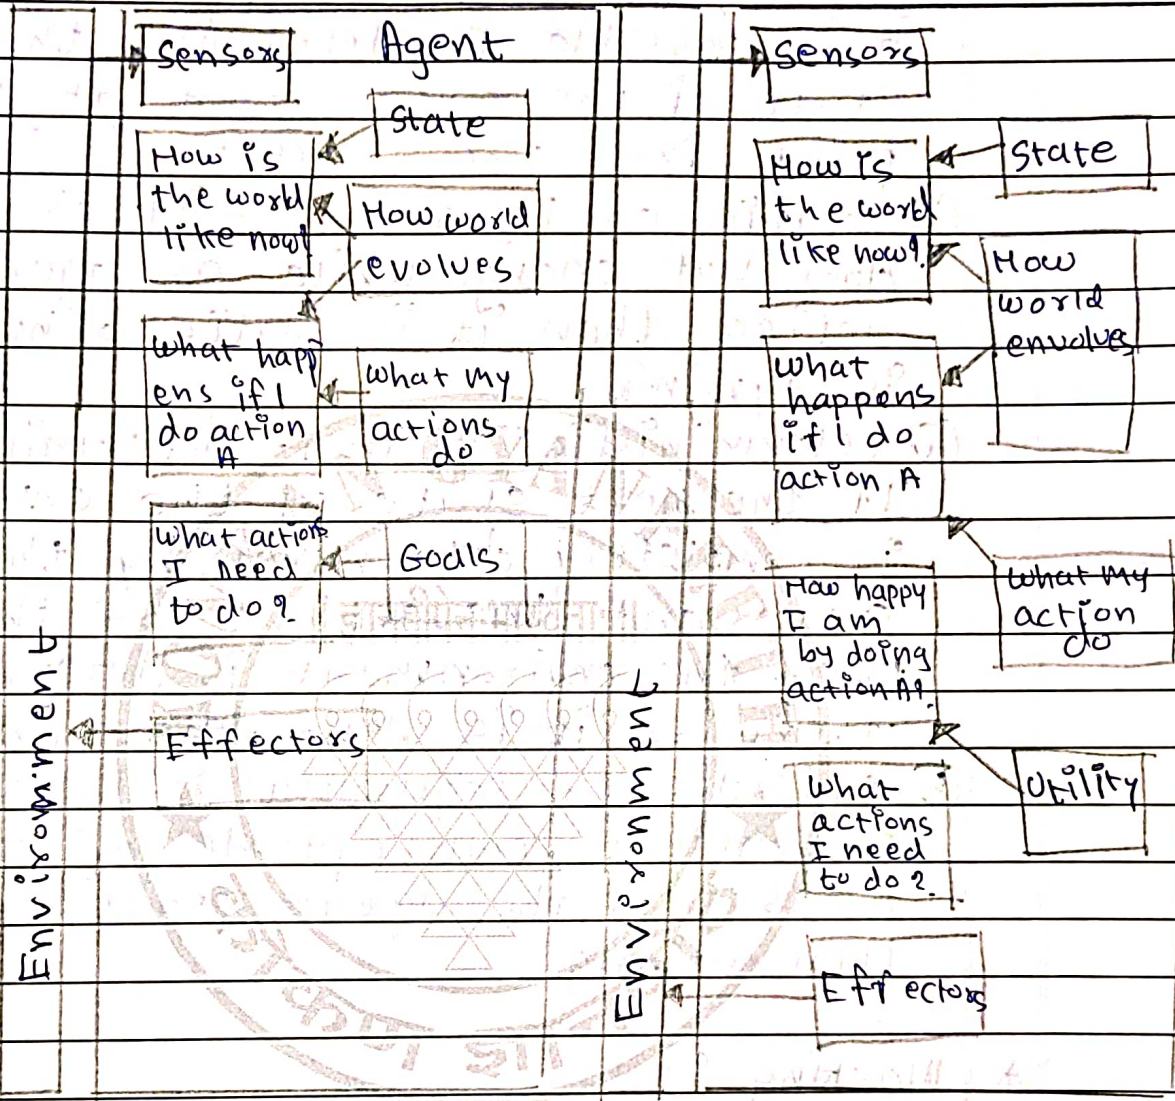 Sensors
Agent
State
How is
the world
like now?
How world
evolves
What happ
ens if I
do action
A
What my
actions
do
What actions
I need
to do?
Goals
Effectors
Environment
Sensors
State
How is
the world
like now?
How
world
envolves
What
happens
if I do
action A
What my
action
do
How happy
I am
by doing
action A?
Utility
What
actions
I need
to do?
Effectors
Environment